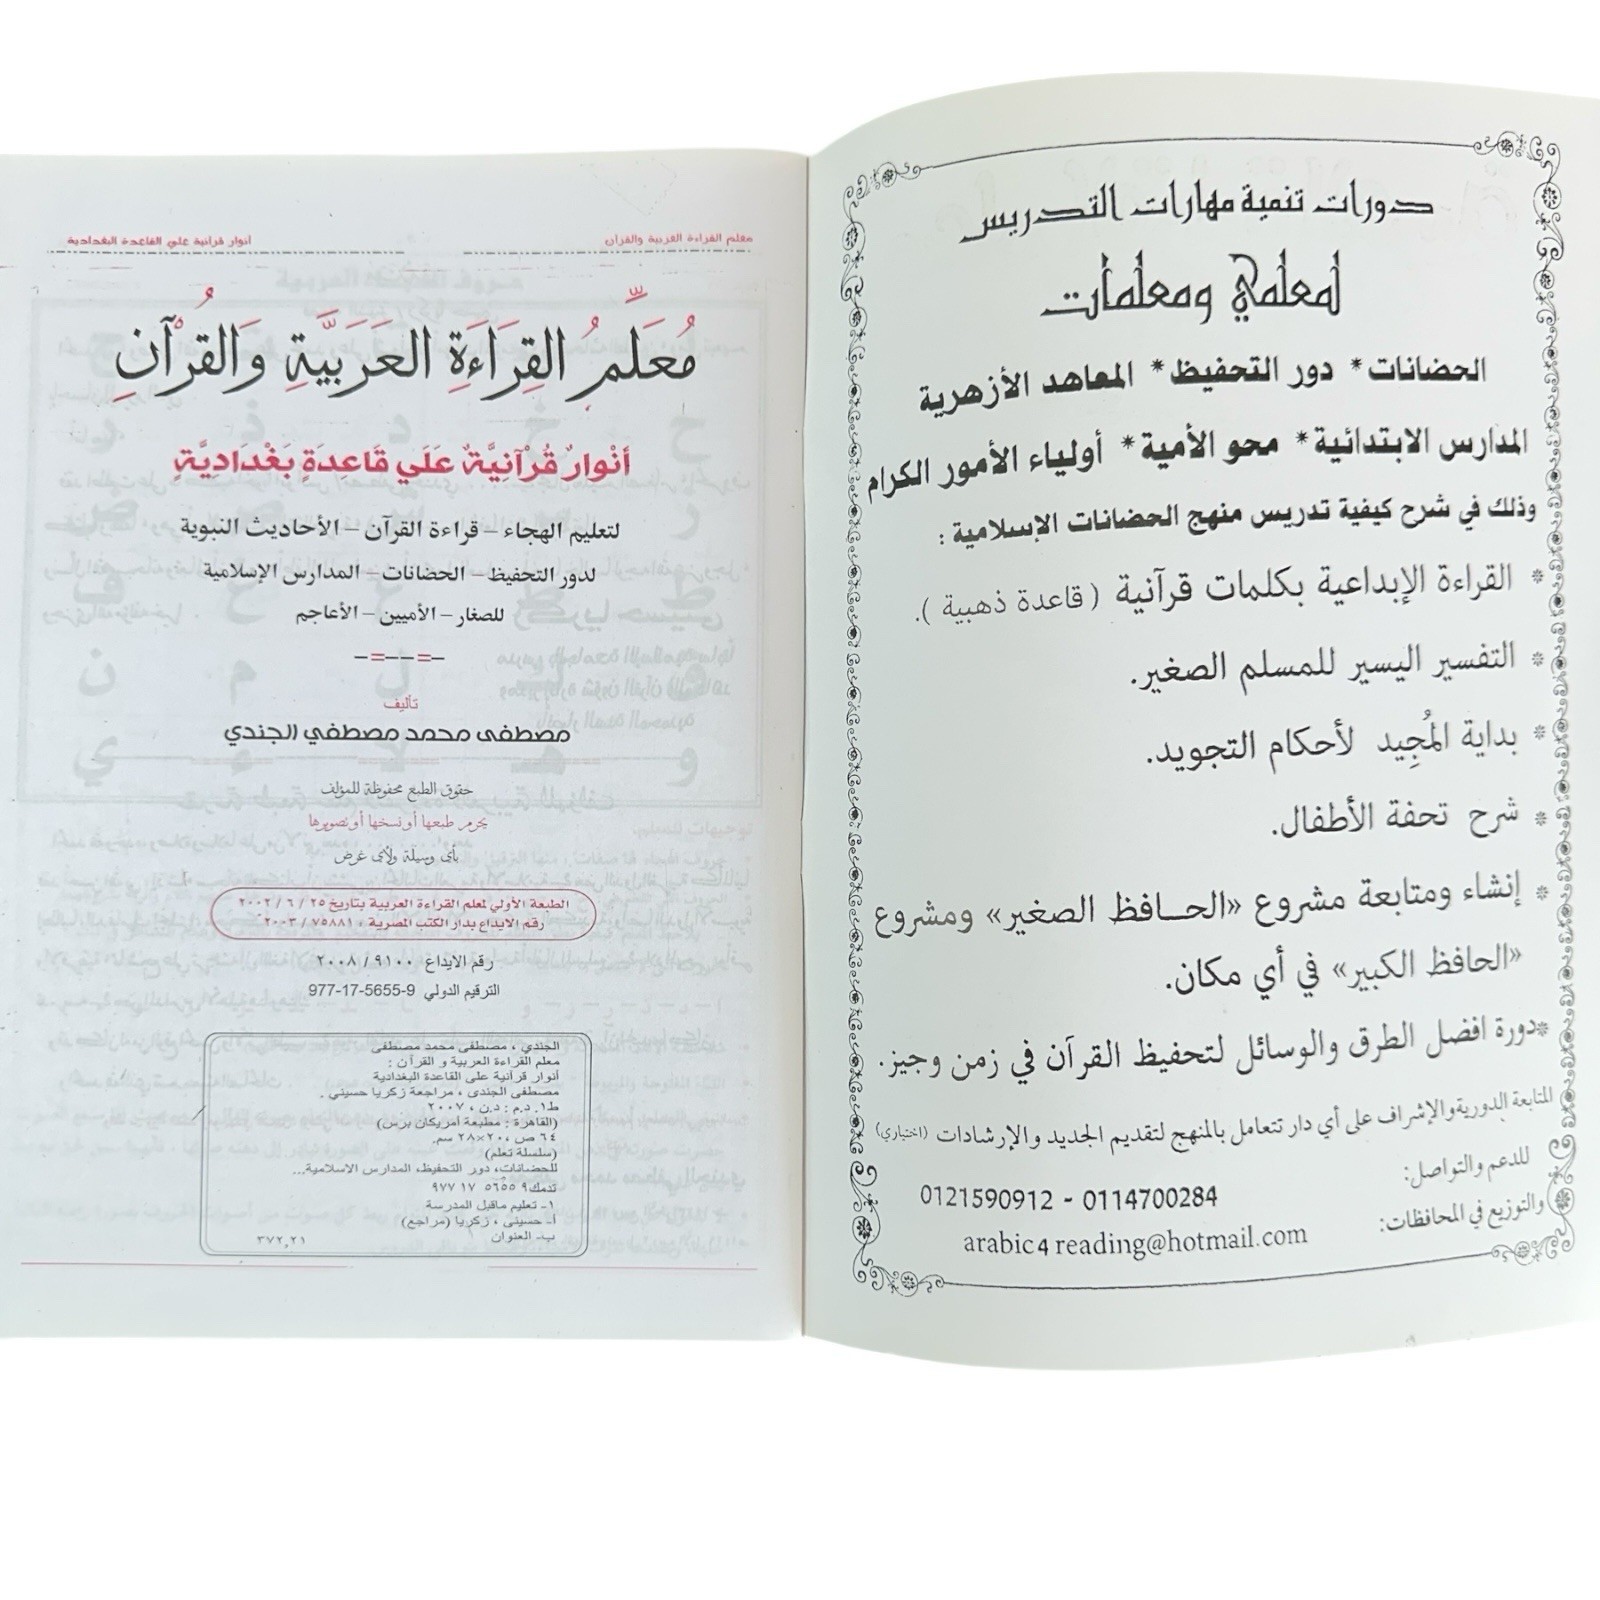 دورات تنمية مهارات التدريس
لمعلمي ومعلمات
الحضانات * دور التحفيظ * المعاهد الأزهرية
المدارس الابتدائية * محو الأمية * أولياء الأمور الكرام
وذلك في شرح كيفية تدريس منهج الحضانات الإسلامية :
* القراءة الإبداعية بكلمات قرآنية ( قاعدة ذهبية ).
* التفسير اليسير للمسلم الصغير.
* بداية المُجِيد لأحكام التجويد.
* شرح تحفة الأطفال.
* إنشاء ومتابعة مشروع «الحافظ الصغير» ومشروع
«الحافظ الكبير» في أي مكان.
* دورة افضل الطرق والوسائل لتحفيظ القرآن في زمن وجيز.
المتابعة الدورية والإشراف على أي دار تتعامل بالمنهج لتقديم الجديد والإرشادات (اختياري)
للدعم والتواصل:
0121590912 - 0114700284
والتوزيع في المحافظات:
arabic4reading@hotmail.com
معلم القراءة العربية والقرآن
أنوار قرآنية علي القاعدة البغدادية
مُعَلِّمُ القِرَاءَةِ العَرَبِيَّةِ وَالقُرْآنِ
أنْوارٌ قُرْآنِيَّةٌ عَلَي قَاعِدَةٍ بَغْدَادِيَّةٍ
لتعليم الهجاء – قراءة القرآن – الأحاديث النبوية
لدور التحفيظ – الحضانات – المدارس الإسلامية
للصغار – الأميين – الأعاجم
تأليف
مصطفى محمد مصطفي الجندي
حقوق الطبع محفوظة للمؤلف
يحرم طبعها أو نسخها أو تصويرها
بأى وسيلة ولأى غرض
الطبعة الأولي لمعلم القراءة العربية بتاريخ ٢٥ / ٦ / ٢٠٠٢
رقم الايداع بدار الكتب المصرية ، ٧٥٨٨١ / ٢٠٠٣
رقم الايداع ٩١٠٠ / ٢٠٠٨
الترقيم الدولي 977-17-5655-9
الجندي ، مصطفى محمد مصطفى
معلم القراءة العربية و القرآن :
أنوار قرآنية على القاعدة البغدادية
مصطفى الجندى ، مراجعة زكريا حسيني .
ط١. د.م : د.ن ، ٢٠٠٧
(القاهرة : مطبعة أمريكان برس)
٦٤ ص ،٢٠×٢٨ سم.
(سلسلة تعلم)
للحضانات، دور التحفيظ، المدارس الاسلامية...
تدمك٩ ٥٦٥٥ ١٧ ٩٧٧
١- تعليم ماقبل المدرسة
أ- حسينى ، زكريا (مراجع)
ب- العنوان
٣٧٢,٢١